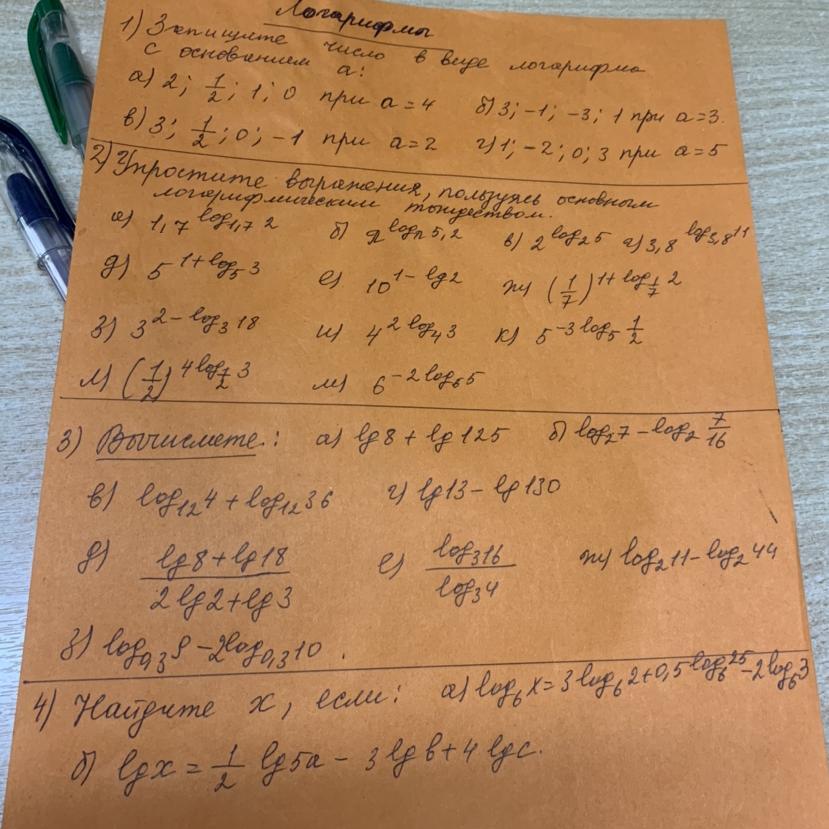 Логарифмы
1) Запишите число в виде логарифма
с основанием a:
а) 2; 1/2; 1; 0 при a = 4 б) 3; -1; -3; 1 при a = 3.
в) 3; 1/2; 0; -1 при a = 2 г) 1; -2; 0; 3 при a = 5
2) Упростите выражения, пользуясь основным
логарифмическим тождеством.
а) 1,7^(log_1,7 2) б) π^(log_π 5,2) в) 2^(log_2 5) г) 3,8^(log_3,8 11)
д) 5^(1+log_5 3) е) 10^(1-lg2) ж) (1/7)^(1+log_(1/7) 2)
з) 3^(2-log_3 18) и) 4^(2log_4 3) к) 5^(-3log_5 1/2)
л) (1/2)^(4log_(1/2) 3) м) 6^(-2log_6 5)
3) Вычислите: а) lg8 + lg125 б) log_2 7 - log_2 7/16
в) log_12 4 + log_12 36 г) lg13 - lg130
д) (lg8 + lg18)/(2lg2 + lg3) е) (log_3 16)/(log_3 4) ж) log_2 11 - log_2 44
з) log_0,3 9 - 2log_0,3 10.
4) Найдите x, если: а) log_6 x = 3log_6 2 + 0,5 log_6 25 - 2log_6 3
б) lgx = 1/2 lg5a - 3lgb + 4lgc.